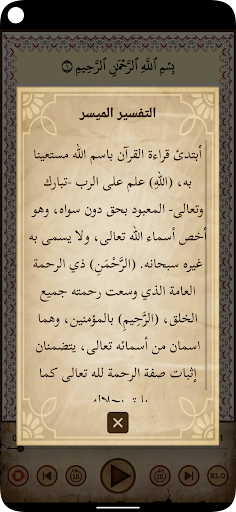 بِسْمِ ٱللَّهِ ٱلرَّحْمَٰنِ ٱلرَّحِيمِ ١
التفسير الميسر
أبتدئ قراءة القرآن باسم الله مستعينا
به، (اللهِ) علم على الرب -تبارك
وتعالى- المعبود بحق دون سواه، وهو
أخص أسماء الله تعالى، ولا يسمى به
غيره سبحانه. (الرَّحْمَنِ) ذي الرحمة
العامة الذي وسعت رحمته جميع
الخلق، (الرَّحِيمِ) بالمؤمنين، وهما
اسمان من أسمائه تعالى، يتضمنان
إثبات صفة الرحمة لله تعالى كما
X1.0